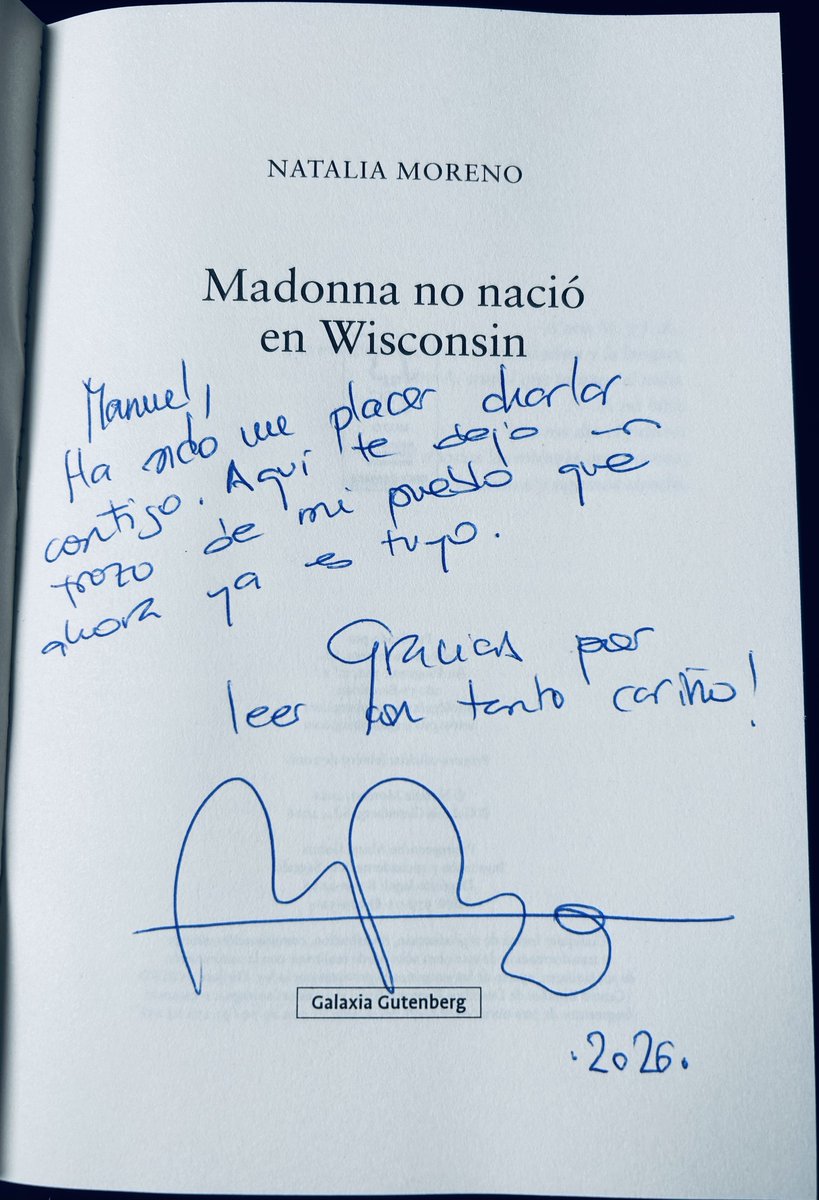 NATALIA MORENO
Madonna no nació
en Wisconsin
Manuel,
Ha sido un placer charlar
contigo. Aquí te dejo un
trozo de mi pueblo que
ahora ya es tuyo.
Gracias por
leer con tanto cariño!
Galaxia Gutenberg
.2026.